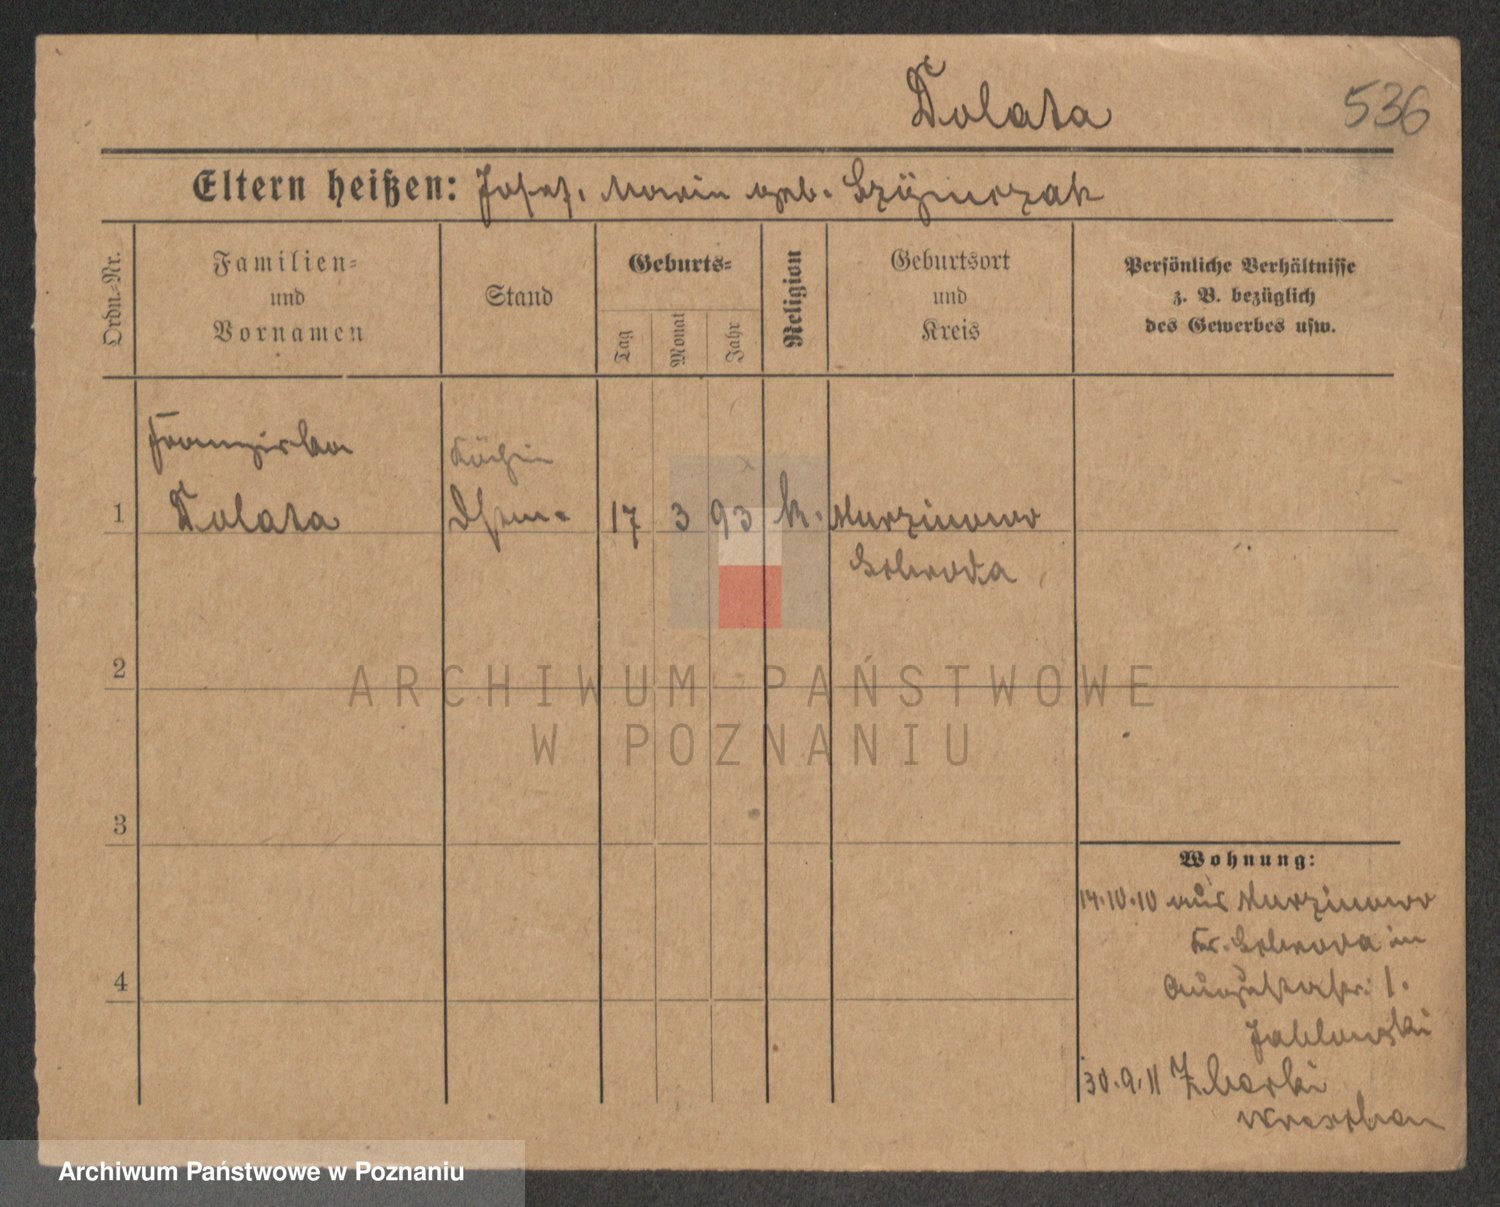 Dolata
536
Eltern heißen: Josef. Maria geb. Szymczak
Ordn.-Nr.
Familien-
und
Vornamen
Stand
Geburts-
Tag
Monat
Jahr
Religion
Geburtsort
und
Kreis
Persönliche Verhältnisse
z. B. bezüglich
des Gewerbes usw.
Franziska
Köchin
1 Dolata 17 3 93 k. Murzinowo
Schroda
2
ARCHIWUM PAŃSTWOWE
W POZNANIU
3
Wohnung:
14.10.10 aus Murzinowo
Kr. Schroda in
4
Augustastr. 1.
Jablonski
30.9.11 Zberki
Wreschen
Archiwum Państwowe w Poznaniu